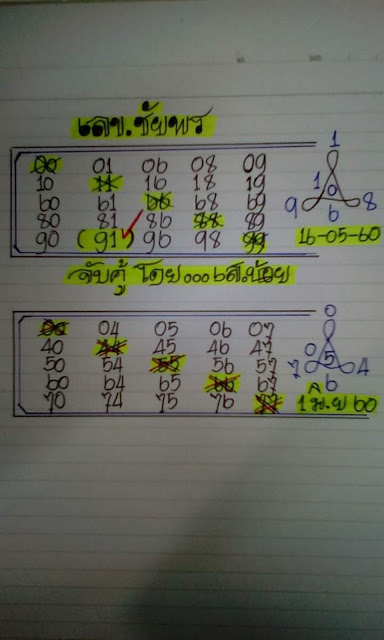 เลข.ชัยพร
1
00 01 06 08 09
10 11 16 18 19
1 0
60 61 66 68 69
9 6 8
80 81 86 88 89
90 (91) 96 98 99
16-05-60
จับคู่ โดย...เส.น้อย
0
00 04 05 06 07
40 44 45 46 47
0 5
50 54 55 56 57
7 6 4
60 64 65 66 67
70 74 75 76 77
1 มิ.ย 60